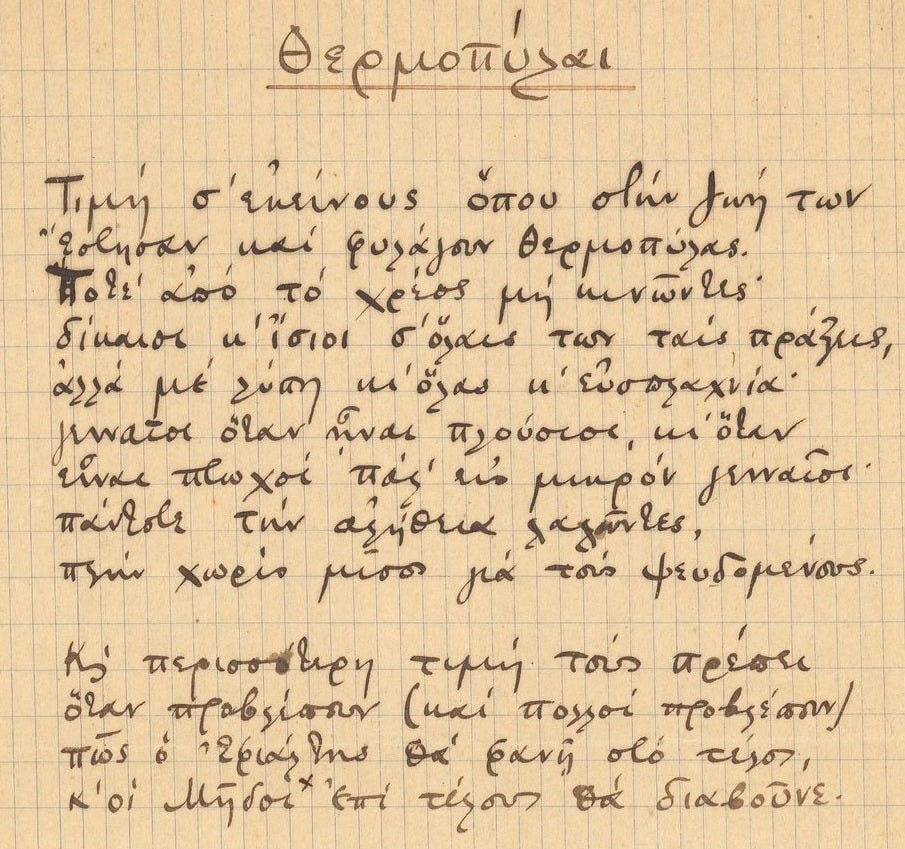 Θερμοπύλαι
Τιμή σ' εκείνους όπου στην ζωή των
Έστησαν και φυλάγουν Θερμοπύλας.
Ποτέ από το χρέος μη κινώντες·
δίκαιοι κ' ίσιοι σ' όλαις των ταις πράξεις,
αλλά με λύπη κι' όλας κ' ευσπλαχνία·
γενναίοι όταν ήναι πλούσιοι, κι' όταν
είναι πτωχοί πάλ' εις μικρόν γενναίοι·
πάντοτε την αλήθεια λαλώντες,
πλην χωρίς μίσος γιά τους ψευδομένους.
Και περισσότερη τιμή τους πρέπει
όταν προβλέπουν (και πολλοί προβλέπουν)
πώς ο Εφιάλτης θα φανή στο τέλος,
κ' οι Μήδοι × επί τέλους θα διαβούνε.